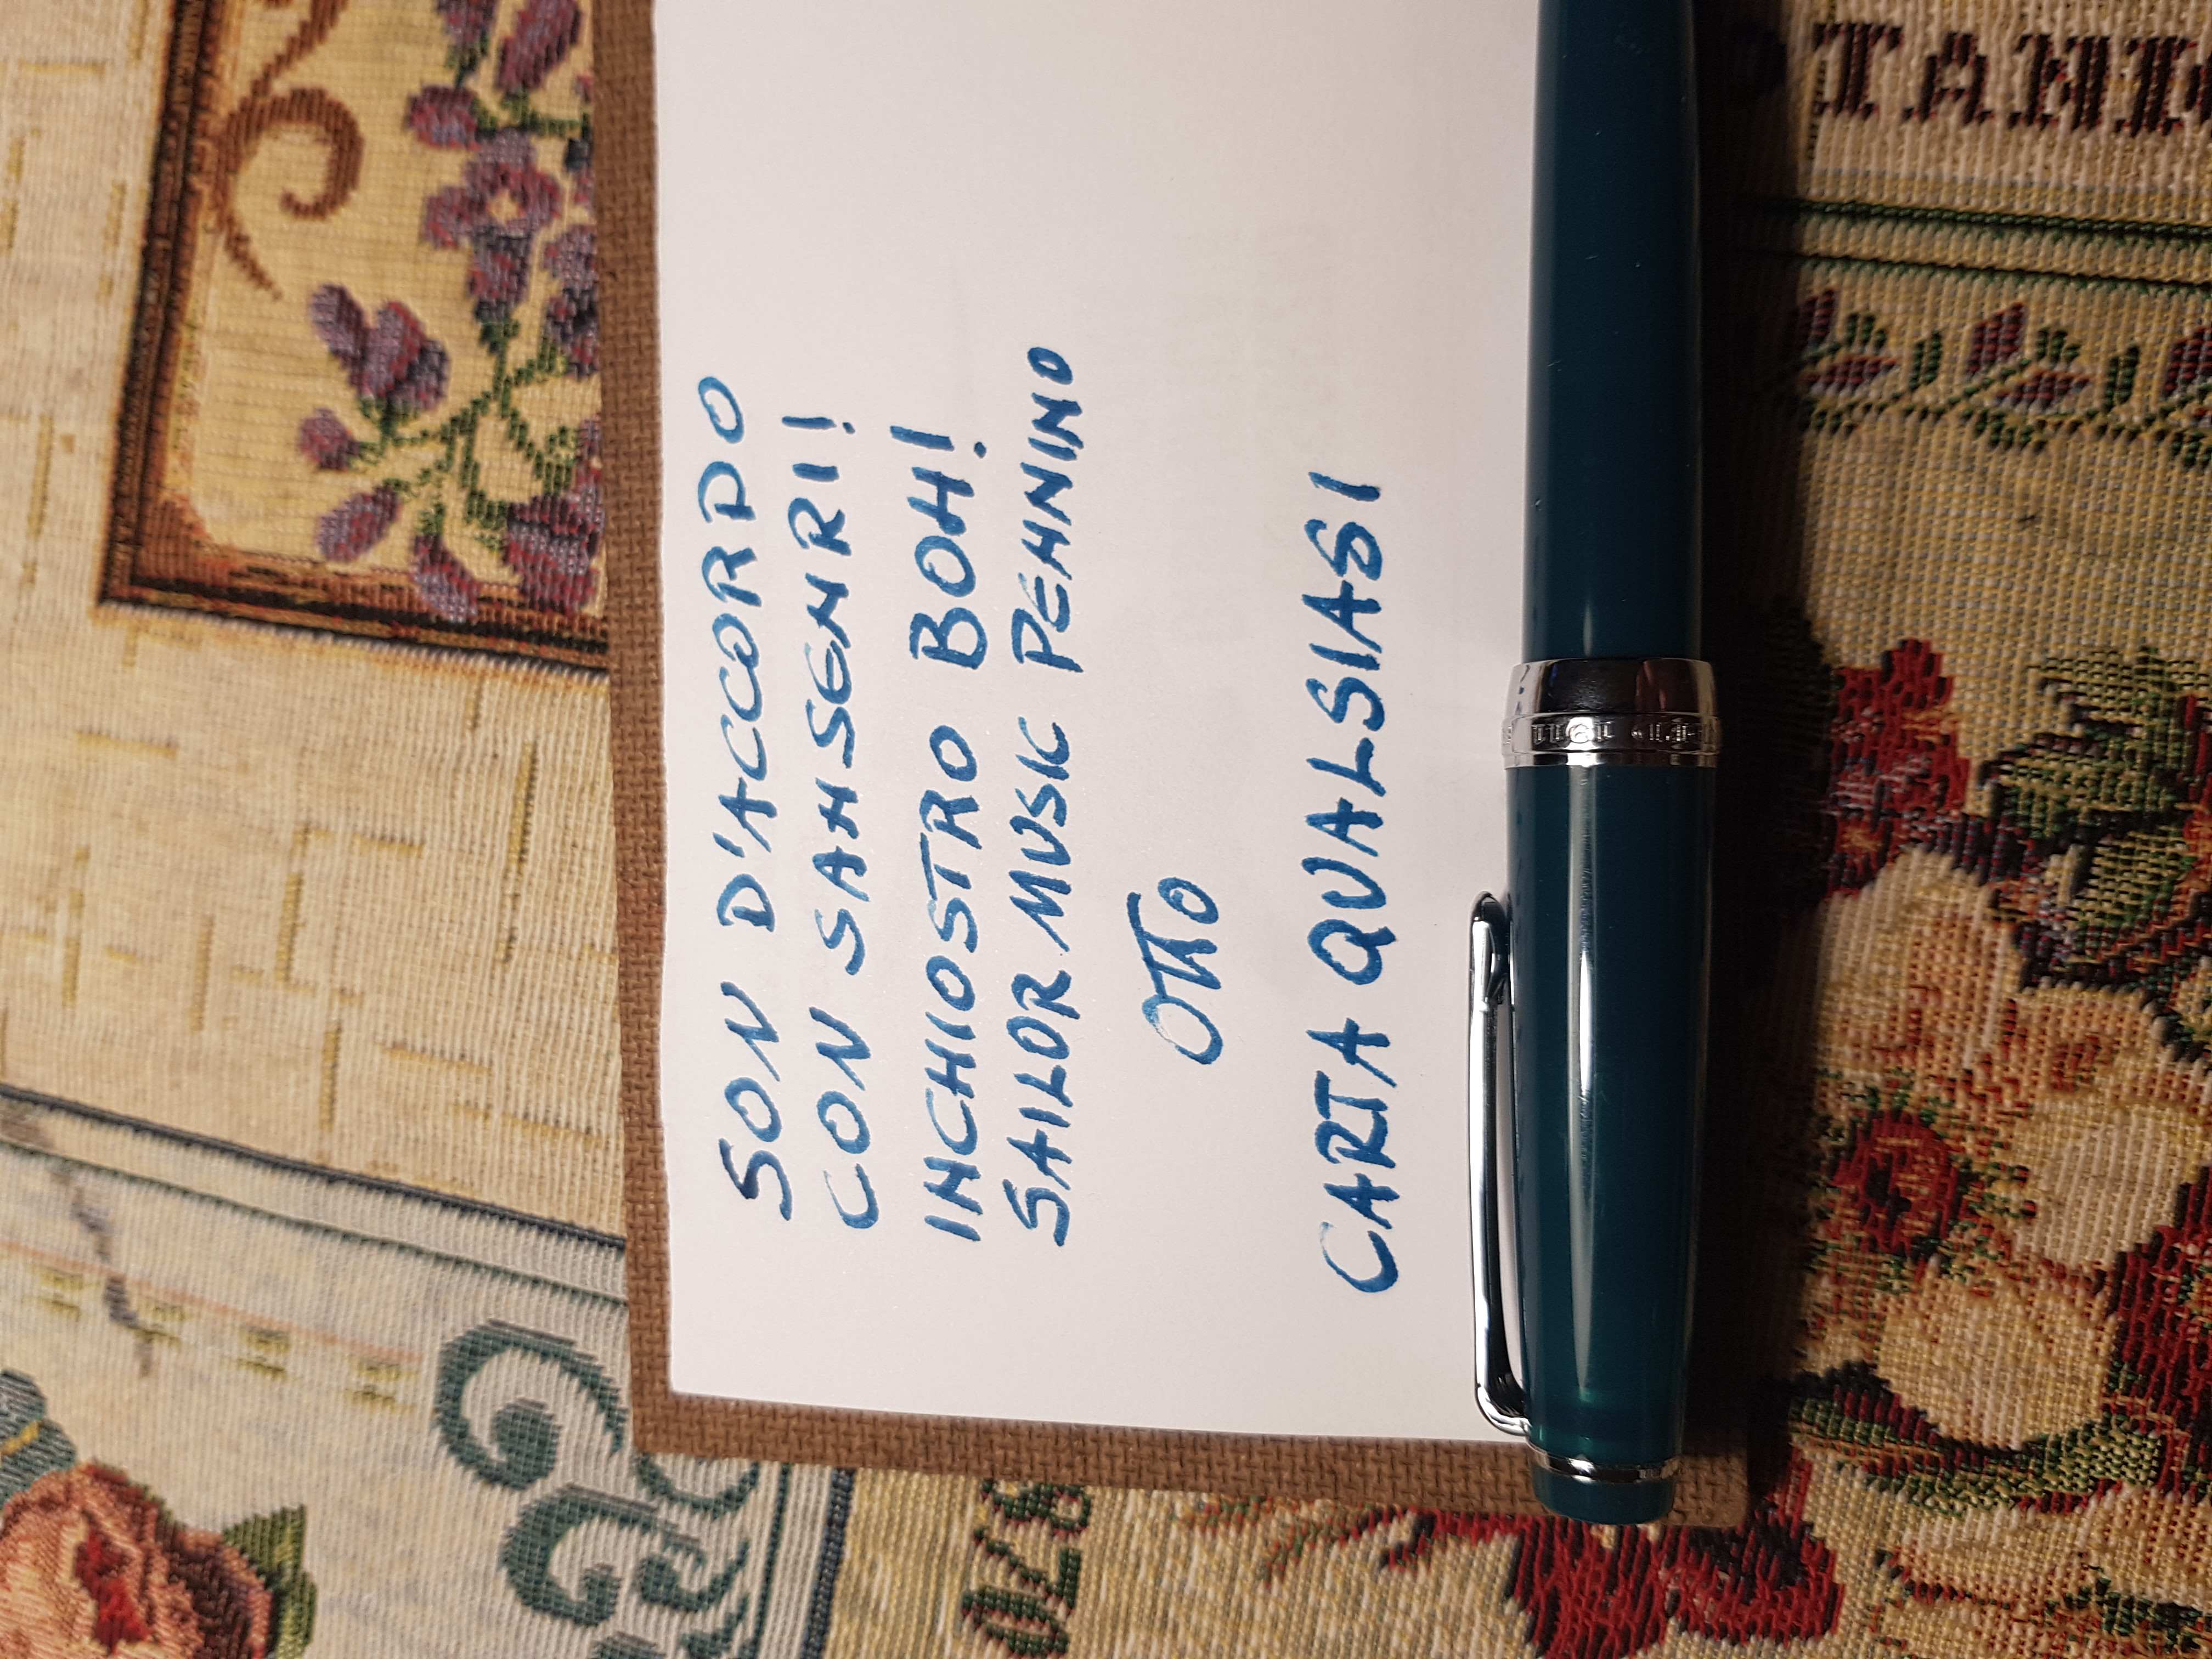 SON D'ACCORDO
CON SANSENRI!
INCHIOSTRO BOH!
SAILOR MUSIC PENNINO
OTTO
CARTA QUALSIASI